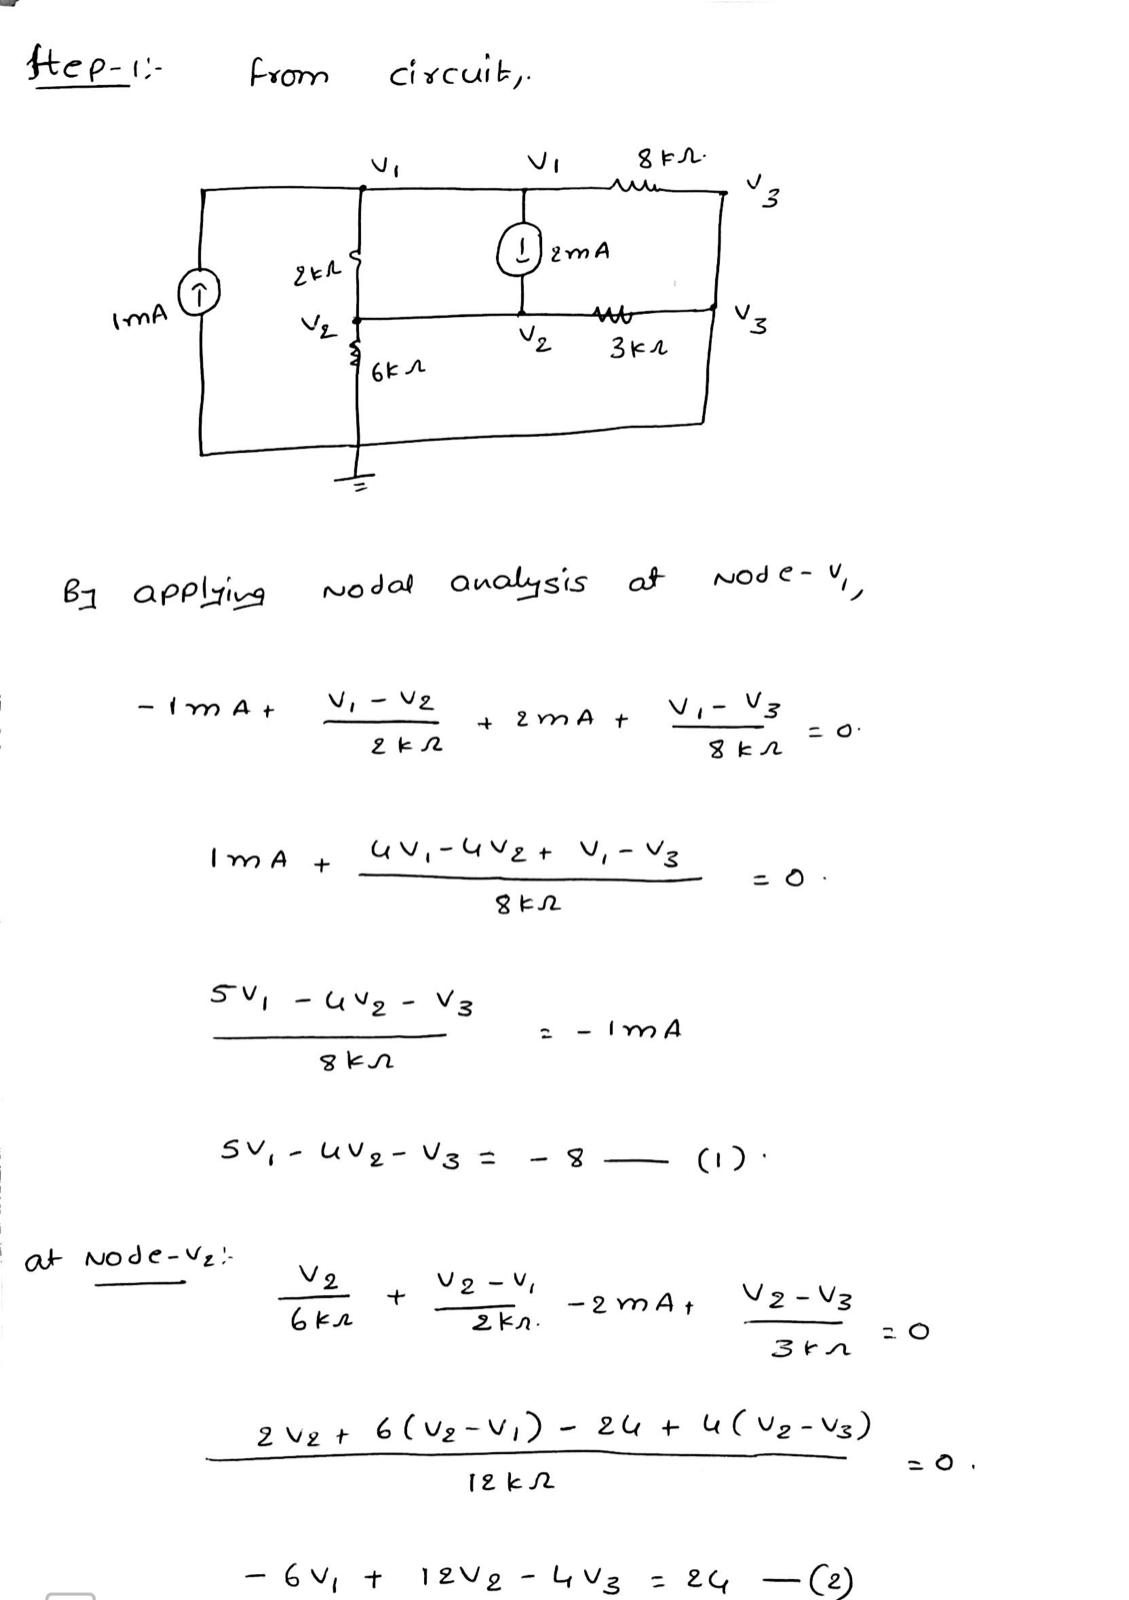 Step-1:- from circuit,.
V1 V1 8kΩ. V3
2kΩ 2mA
1mA V2 V2 3kΩ V3
6kΩ
By applying Nodal analysis at Node-V1,
-1mA + (V1-V2)/2kΩ + 2mA + (V1-V3)/8kΩ = 0.
1mA + (4V1-4V2+V1-V3)/8kΩ = 0.
(5V1-4V2-V3)/8kΩ = -1mA
5V1-4V2-V3 = -8 — (1).
at Node-V2:-
V2/6kΩ + (V2-V1)/2kΩ. -2mA + (V2-V3)/3kΩ = 0
(2V2+6(V2-V1)-24+4(V2-V3))/12kΩ = 0.
-6V1+12V2-4V3 = 24 — (2)